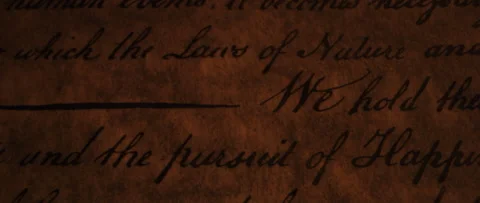 human events, it becomes necessary
which the Laws of Nature and
We hold the
and the pursuit of Happi